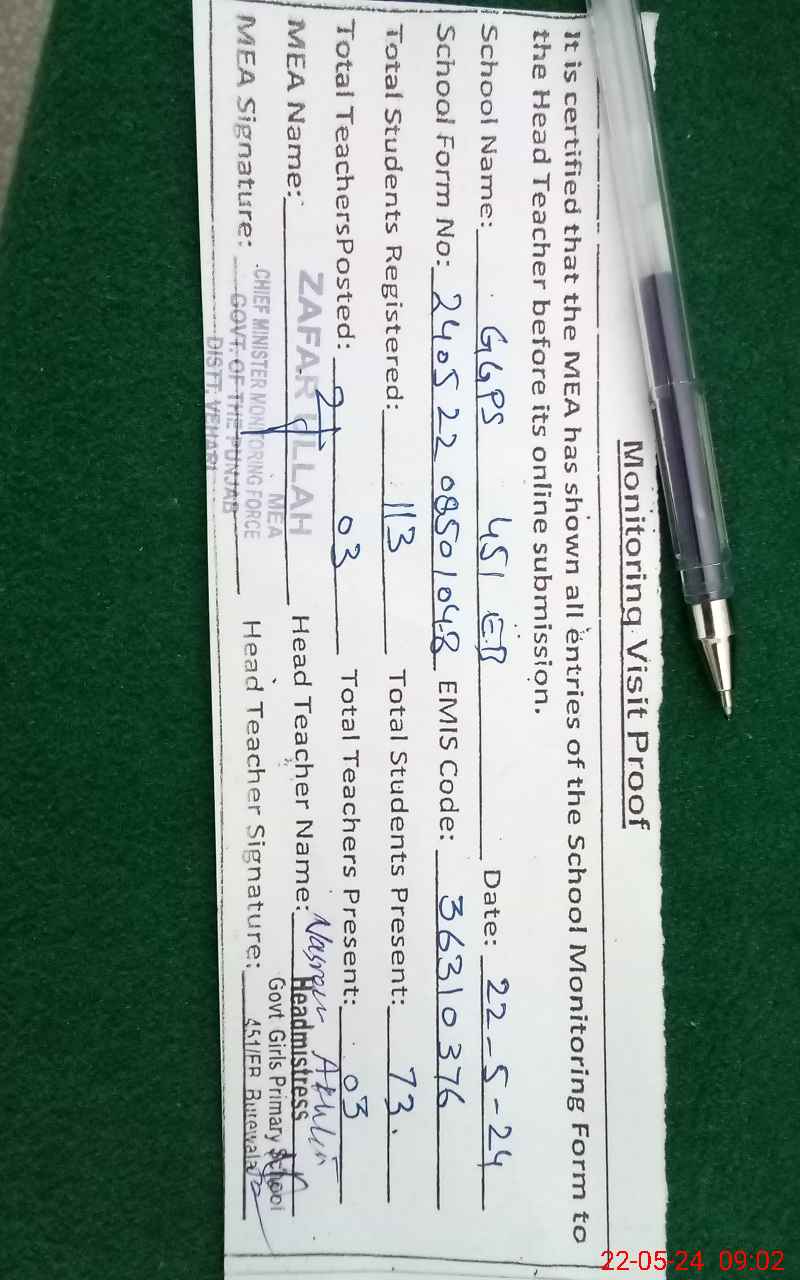 Monitoring Visit Proof
It is certified that the MEA has shown all entries of the School Monitoring Form to
the Head Teacher before its online submission.
School Name: GGPS 451 EB Date: 22-5-24
School Form No: 24052208501048 EMIS Code: 36310376
Total Students Registered: 113 Total Students Present: 73.
Total TeachersPosted: 03 Total Teachers Present: 03
MEA Name: ZAFAR ULLAH Head Teacher Name: Nasreen Akhtar
MEA
Headmistress
MEA Signature: Head Teacher Signature:
CHIEF MINISTER MONITORING FORCE
GOVT. OF THE PUNJAB
DISTT. VEHARI
Govt Girls Primary School
451/EB Burewala
22-05-24 09:02